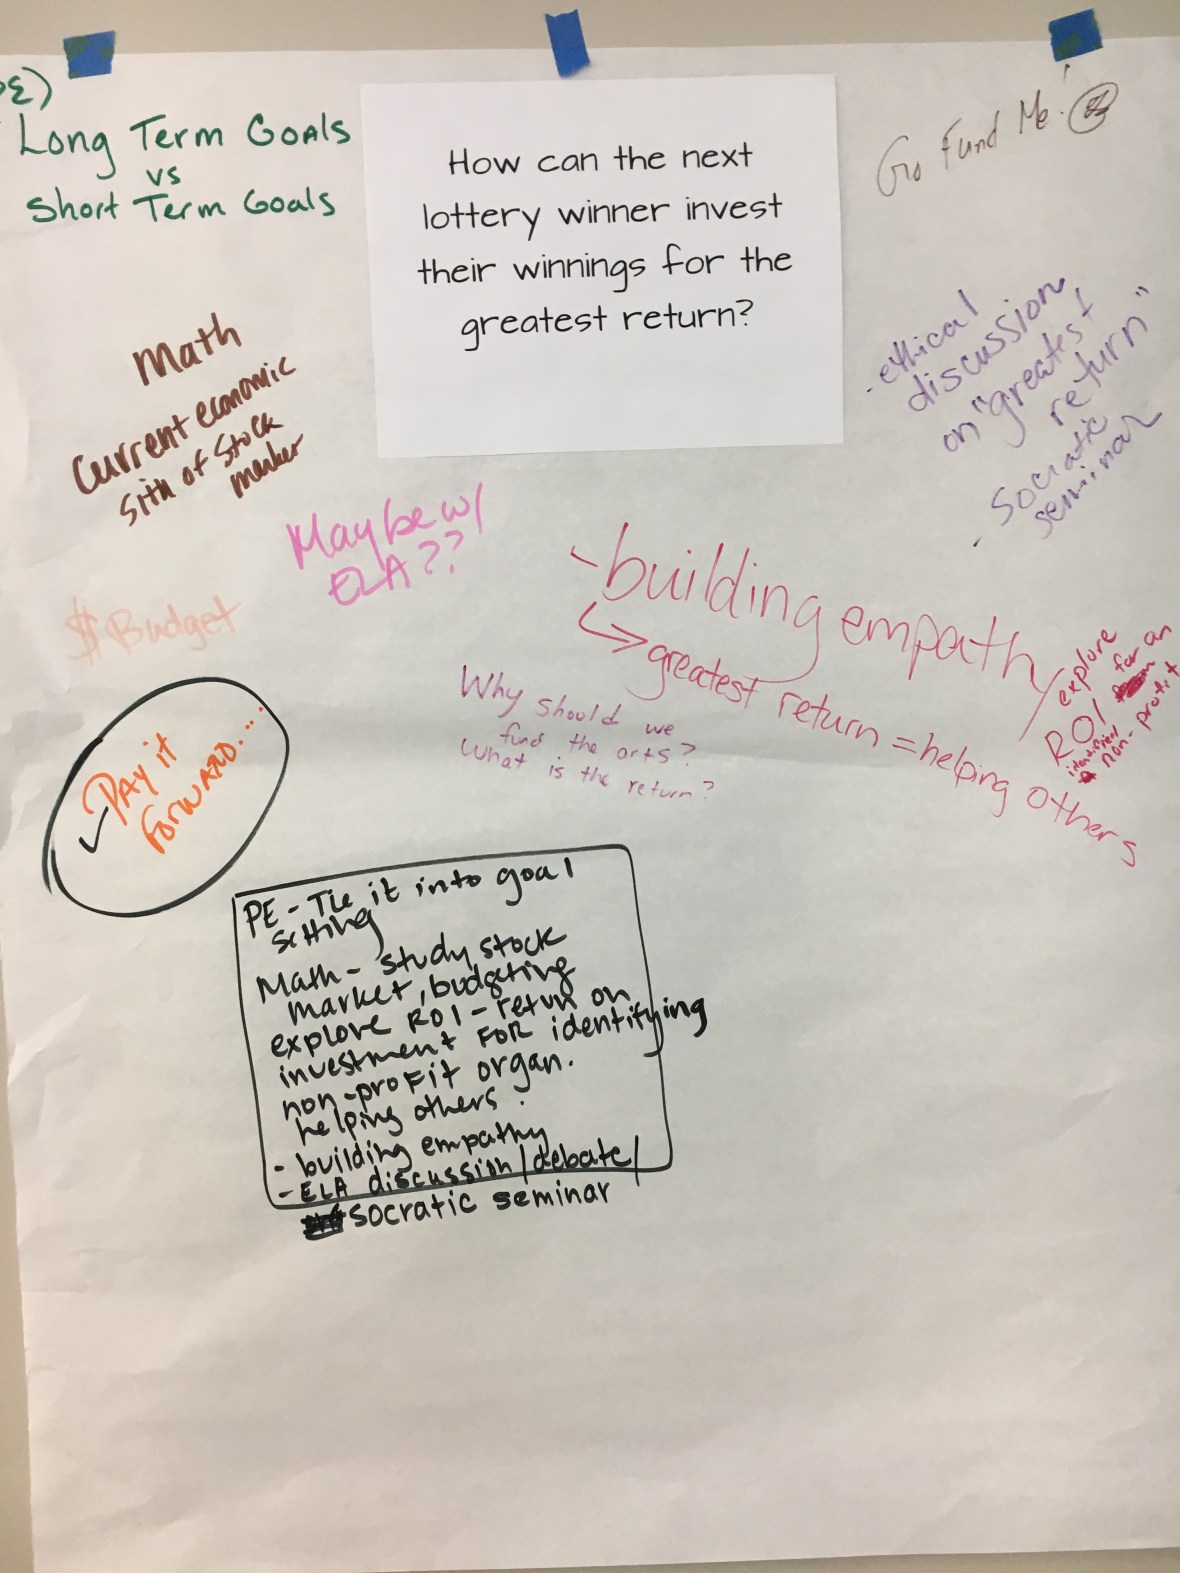 Long Term Goals
vs
Short Term Goals
How can the next
lottery winner invest
their winnings for the
greatest return?
Go Fund Me!
Math
Current economic
sitn of Stock
market
- ethical
discussion
on "greatest
return"
- Socratic
seminar
Maybe w/
ELA??
$ Budget
- building empathy
greatest return = helping others
explore
ROI for an
identified
non-profit
Why should we
fund the arts?
What is the return?
Pay it
forward....
PE - Tie it into goal
setting
Math - study stock
market, budgeting
explore ROI - return on
investment FOR identifying
non-profit organ.
helping others.
- building empathy
- ELA discussion/debate/
socratic seminar